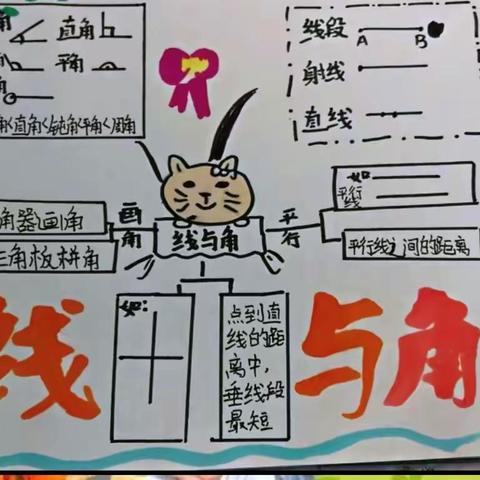 角
直角
角
平角
角
角<直角<钝角<平角<周角
线段
A
B
射线
直线
角器画角
三角板拼角
画角
线与角
平行
如
平行线
平行线之间的距离
如:
点到直
线的距
离中,
垂线段
最短
线与角